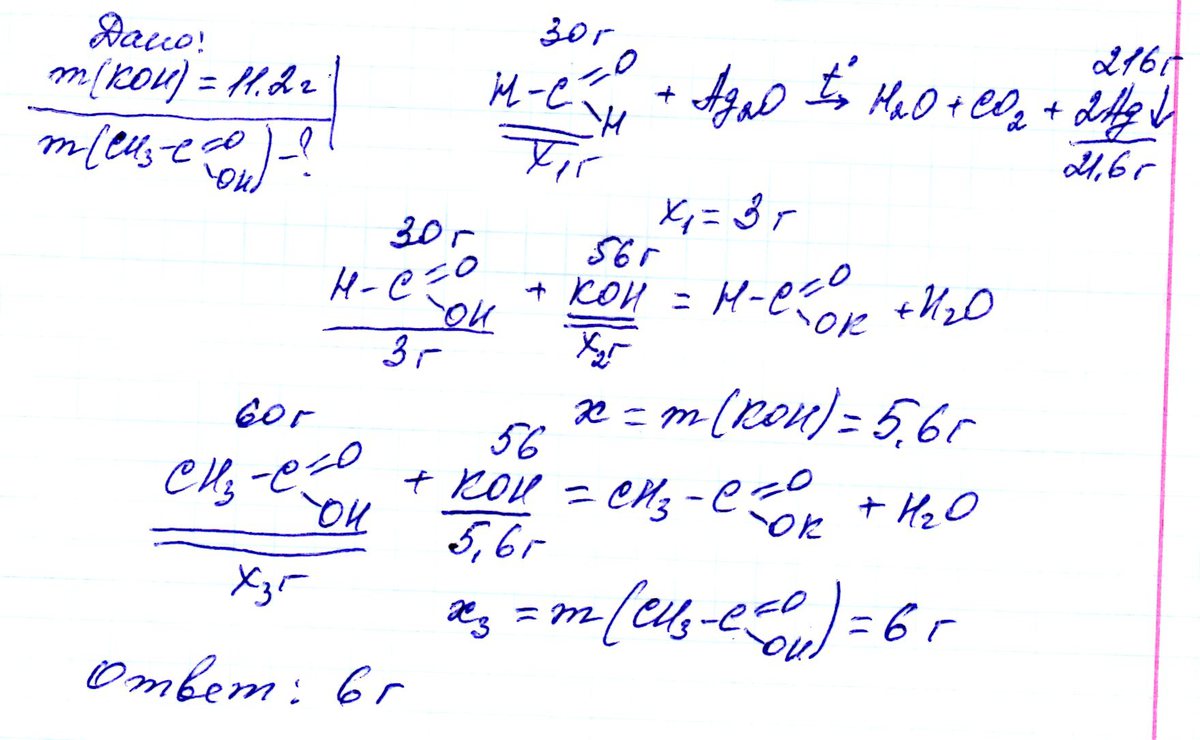 Дано:
m(KOH) = 11.2г
m(CH₃-C=O OH) - ?
30г 216г
H-C=O H + Ag₂O t° → H₂O + CO₂ + 2Ag↓
x₁г 21,6г
x₁ = 3г
30г 56г
H-C=O OH + KOH = H-C=O OK + H₂O
3г x₂г
x = m(KOH) = 5,6г
60г 56
CH₃-C=O OH + KOH = CH₃-C=O OK + H₂O
x₃г 5,6г
x₃ = m(CH₃-C=O OH) = 6г
Ответ: 6г